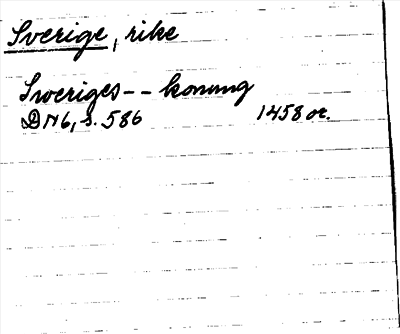 Sverige, rike
Sweriges -- konung
DN 6, s. 586 1458 or.